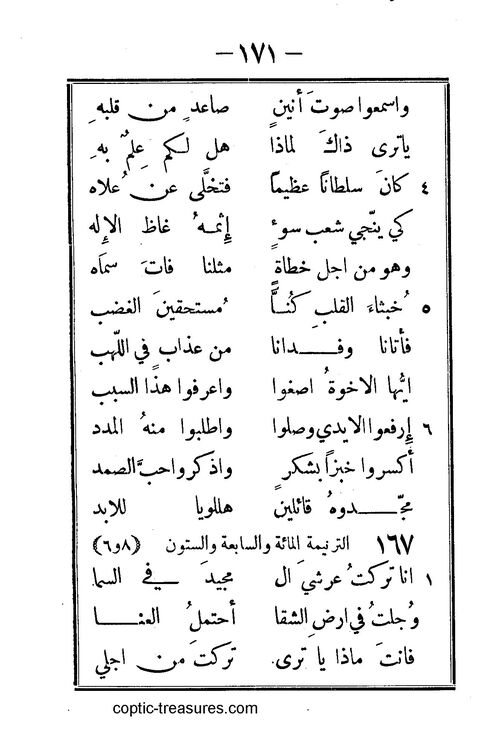 — ١٧١ —
واسمعوا صوتَ أنينٍ صاعدٍ من قلبهِ
ياترى ذاكَ لماذا هل لكم علمٌ بهِ
٤ كانَ سلطاناً عظيماً فتخلَّى عن عُلاه
كي ينجّي شعب سوءٍ إثمهُ غاظ الإله
وهو من اجل خطاةٍ مثلنا فاتَ سماه
٥ خُبثاءَ القلبِ كُنَّا مُستحقينَ الغضب
فأتانا وفدانا من عذاب في اللّهب
ايُّها الاخوةُ اصغوا واعرفوا هذا السبب
٦ إرفعوا الايدي وصلوا واطلبوا منهُ المدد
أكسروا خبزاً بشكرٍ واذكروا حبَّ الصمد
مجّدوهُ قائلين هللويا للابد
١٦٧ الترنيمة المائة والسابعة والستون (٨و٦)
١ انا تركتُ عرشيَ ال مجيدَ في السما
وجُلتُ في ارضِ الشقا أحتملُ العنا
فانتَ ماذا يا ترى تركتَ من اجلي
coptic-treasures.com